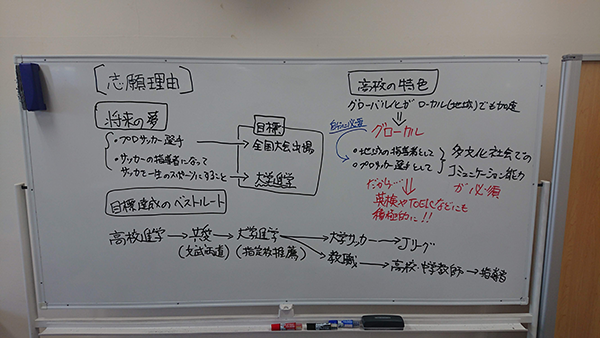 [志願理由]
将来の夢
・プロサッカー選手
・サッカーの指導者になって
サッカー一生のスポーツにすること
目標
全国大会出場
大学進学
目標達成のベストルート
高校進学→共愛→大学進学→大学サッカー→Jリーグ
(文武両道)
(指定校推薦)
教職→高校・中学教師→指導者
高校の特色
グローバル化が ローカル(地域)でも加速
自分に必要
グローカル
・地域の指導者として
・プロサッカー選手として
多文化社会での
コミュニケーション能力
が必須
だから…
英検やTOEICなどにも
積極的に!!